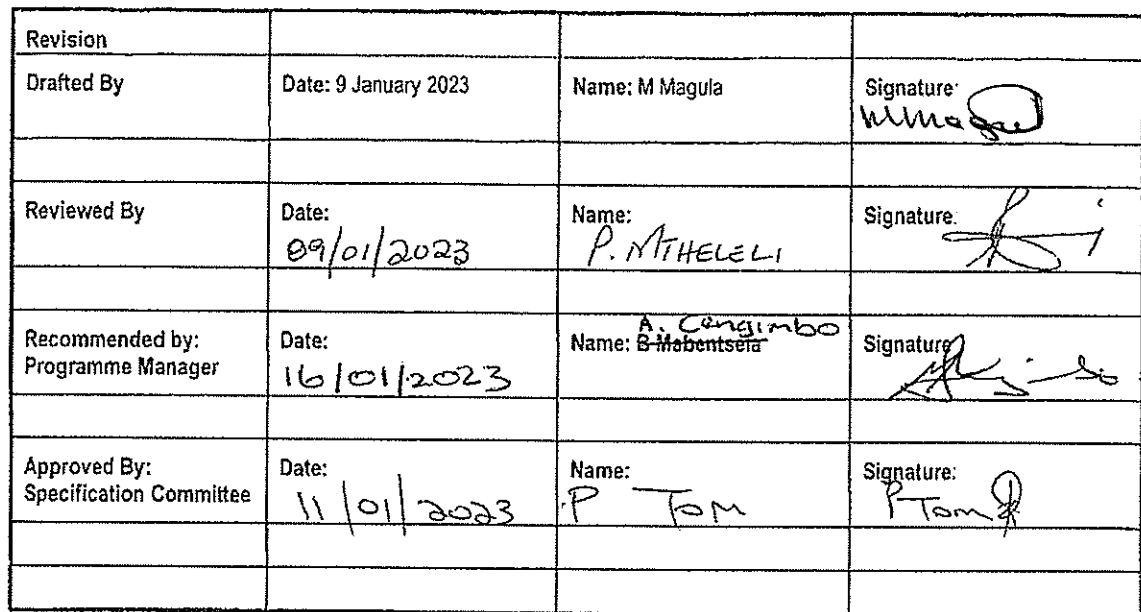 Revision
Drafted By
Date: 9 January 2023
Name: M Magula
Signature:
MMagula
Reviewed By
Date:
09/01/2023
Name:
P. MTHELELI
Signature:
Recommended by:
Programme Manager
Date:
16/01/2023
A. Cengimbo
Name: B Mabentsela
Signature
Approved By:
Specification Committee
Date:
11/01/2023
Name:
P Tom
Signature:
PTom